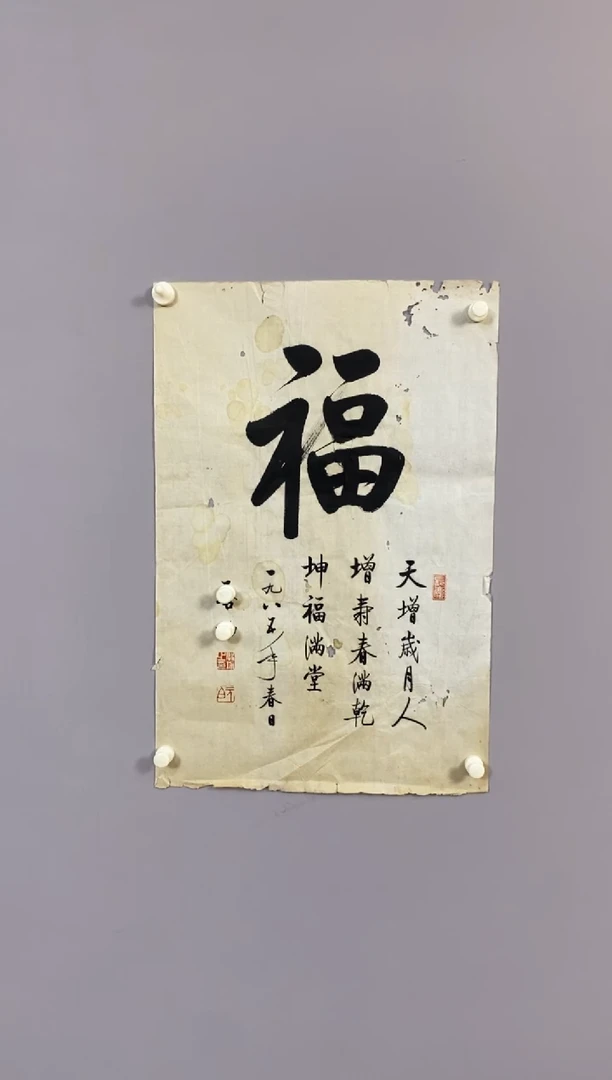 福
天增歲月人
增壽春滿乾
坤福滿堂
一九八五年春日